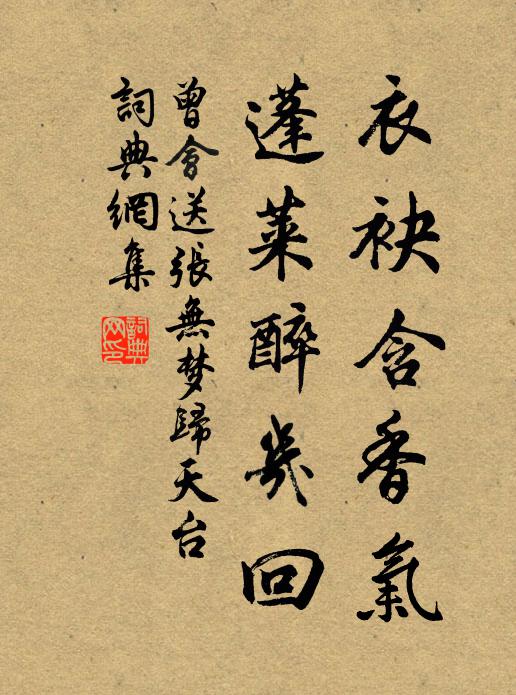 衣袂含香氣
蓬萊醉幾回
曾會送張無梦歸天台
詞典網集
詞典
网印